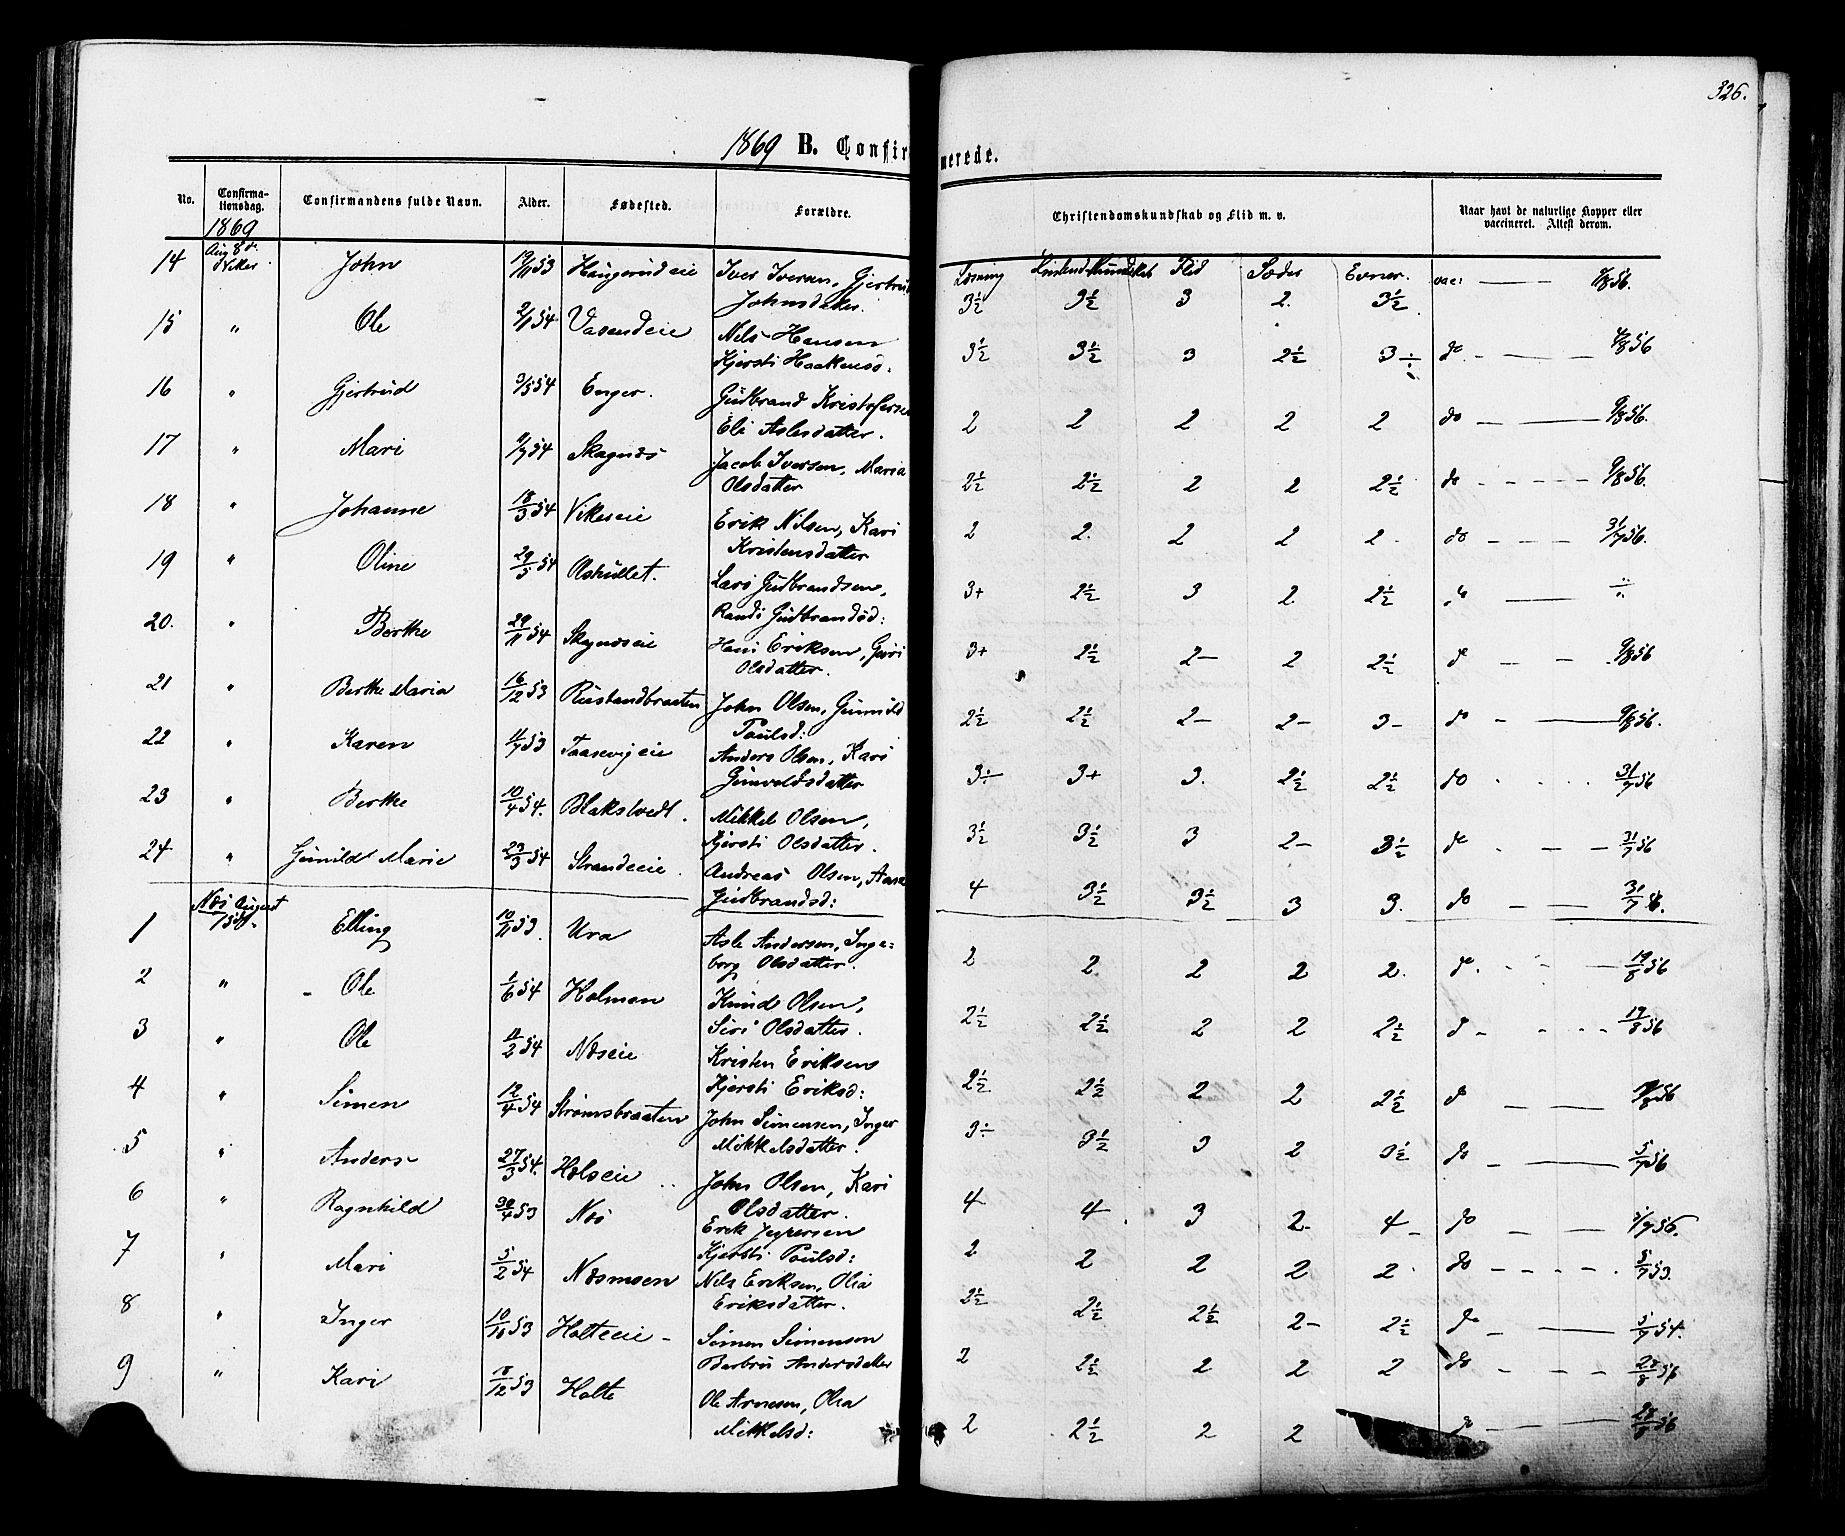 326.
1869 B. Confirmerede.
No. Confirmationsdag. Confirmandens fulde Navn. Alder. Fødested. Forældre. Christendomskundskab og Flid m. v. Naar havt de naturlige Kopper eller vaccineret. Attest derom.
1869
Læsning Kristend. Kundskab Flid Sæder Evner.
14 Aug 8de Viker John 19/11 53 Haugerudeie Iver Iversen, Gjertrud 3½ 3½ 3 2. 3½ vac: 9/8 56.
Johnsdatter.
15 " Ole 2/1 54 Vasendeie Nils Hansen 3½ 3½ 3 2½ 3÷ do 4/8 56
Kjersti Haakensd:
16 " Gjertrud 3/5 54 Enger. Gudbrand Kristofersen 2 2 2 2 2 do 9/8 56.
Eli Aslesdatter.
17 " Mari 54 Skagnæs Jacob Iversen, Maria 2½ 2½ 2 2 2½ do 9/8 56.
Olsdatter
18 " Johanne 18/3 54 Vikeseie Erik Nilsen, Kari 2 2. 2 2 2. do 31/7 56.
Kristensdatter
19 " Oline 29/5 54 Oshullet. Lars Gudbrandsen, 3+ 2½ 3 2 2½
Randi Gudbrandsd:
20. " Berthe 29/11 54 Skagnæseie Hans Eriksen, Guri 3+ 2½ 2– 2 2½ do 9/8 56
Olsdatter.
21 " Berthe Maria 16/12 53 Rustandbraaten John Olsen, Gunnild 2½ 2½ 2– 2– 3– do 9/8 56.
Paulsd:
22 " Karen 11/7 53 Taasevigeie Anders Olsen, Kari 3÷ 3+ 3. 2½ 2½ do 31/7 56
Gunvoldsdatter
23 " Berthe 10/4 54. Blakstvedt. Mikkel Olsen, 3½ 3½ 3 2– 3½ do 31/7 56
Kjersti Olsdatter.
24 " Gunild Marie 23/3 54 Strandeeie. Andreas Olsen, Aase 4 3½ 3½ 3 3. do 31/7 56.
Gudbrandsd:
1 Næs August 15de Elling 10/11 53. Ura Asle Andersen, Inge- 2 2. 2 2 2. do. 19/8 56
borg Olsdatter.
2 " Ole 1/6 54 Holmen Knud Olsen, 2½ 2½ 2 2 2½ do 19/8 56
Siri Olsdatter.
3 " Ole 11/2 54 Næseie Kristen Eriksens 2½ 2½ 2 2 2½ do 56
Kjersti Eriksd:
4 " Simen 12/4 54 Strømsbraaten John Simensen, Inger 3÷ 3½ 3 2 3½ do 5/7 56
Mikkelsdatter.
5 " Anders 27/3 54. Holseie John Olsen, Kari 4 4 3 2– 4– do 56.
Olsdatter.
6 " Ragnhild 30/4 53 Næs Erik Jespersen 2 2 2 2 2. do 5/7 53.
Kjersti Paulsd:
7 " Mari 5/2 54 Næsmoen Nils Eriksen, Olia 2½ 2½ 2½ 2– 2½ do 5/7 54.
Eriksdatter.
8 " Inger 10/10 53 Holteeie Simen Simenson 2 2½ 2 2 2 do 28/8 56
Berbru Andersdatter
9 " Kari 8/12 53 Holte Ole Arnesen, Olia 2 2½ 2 2 do 28/8 56
Mikkelsd: